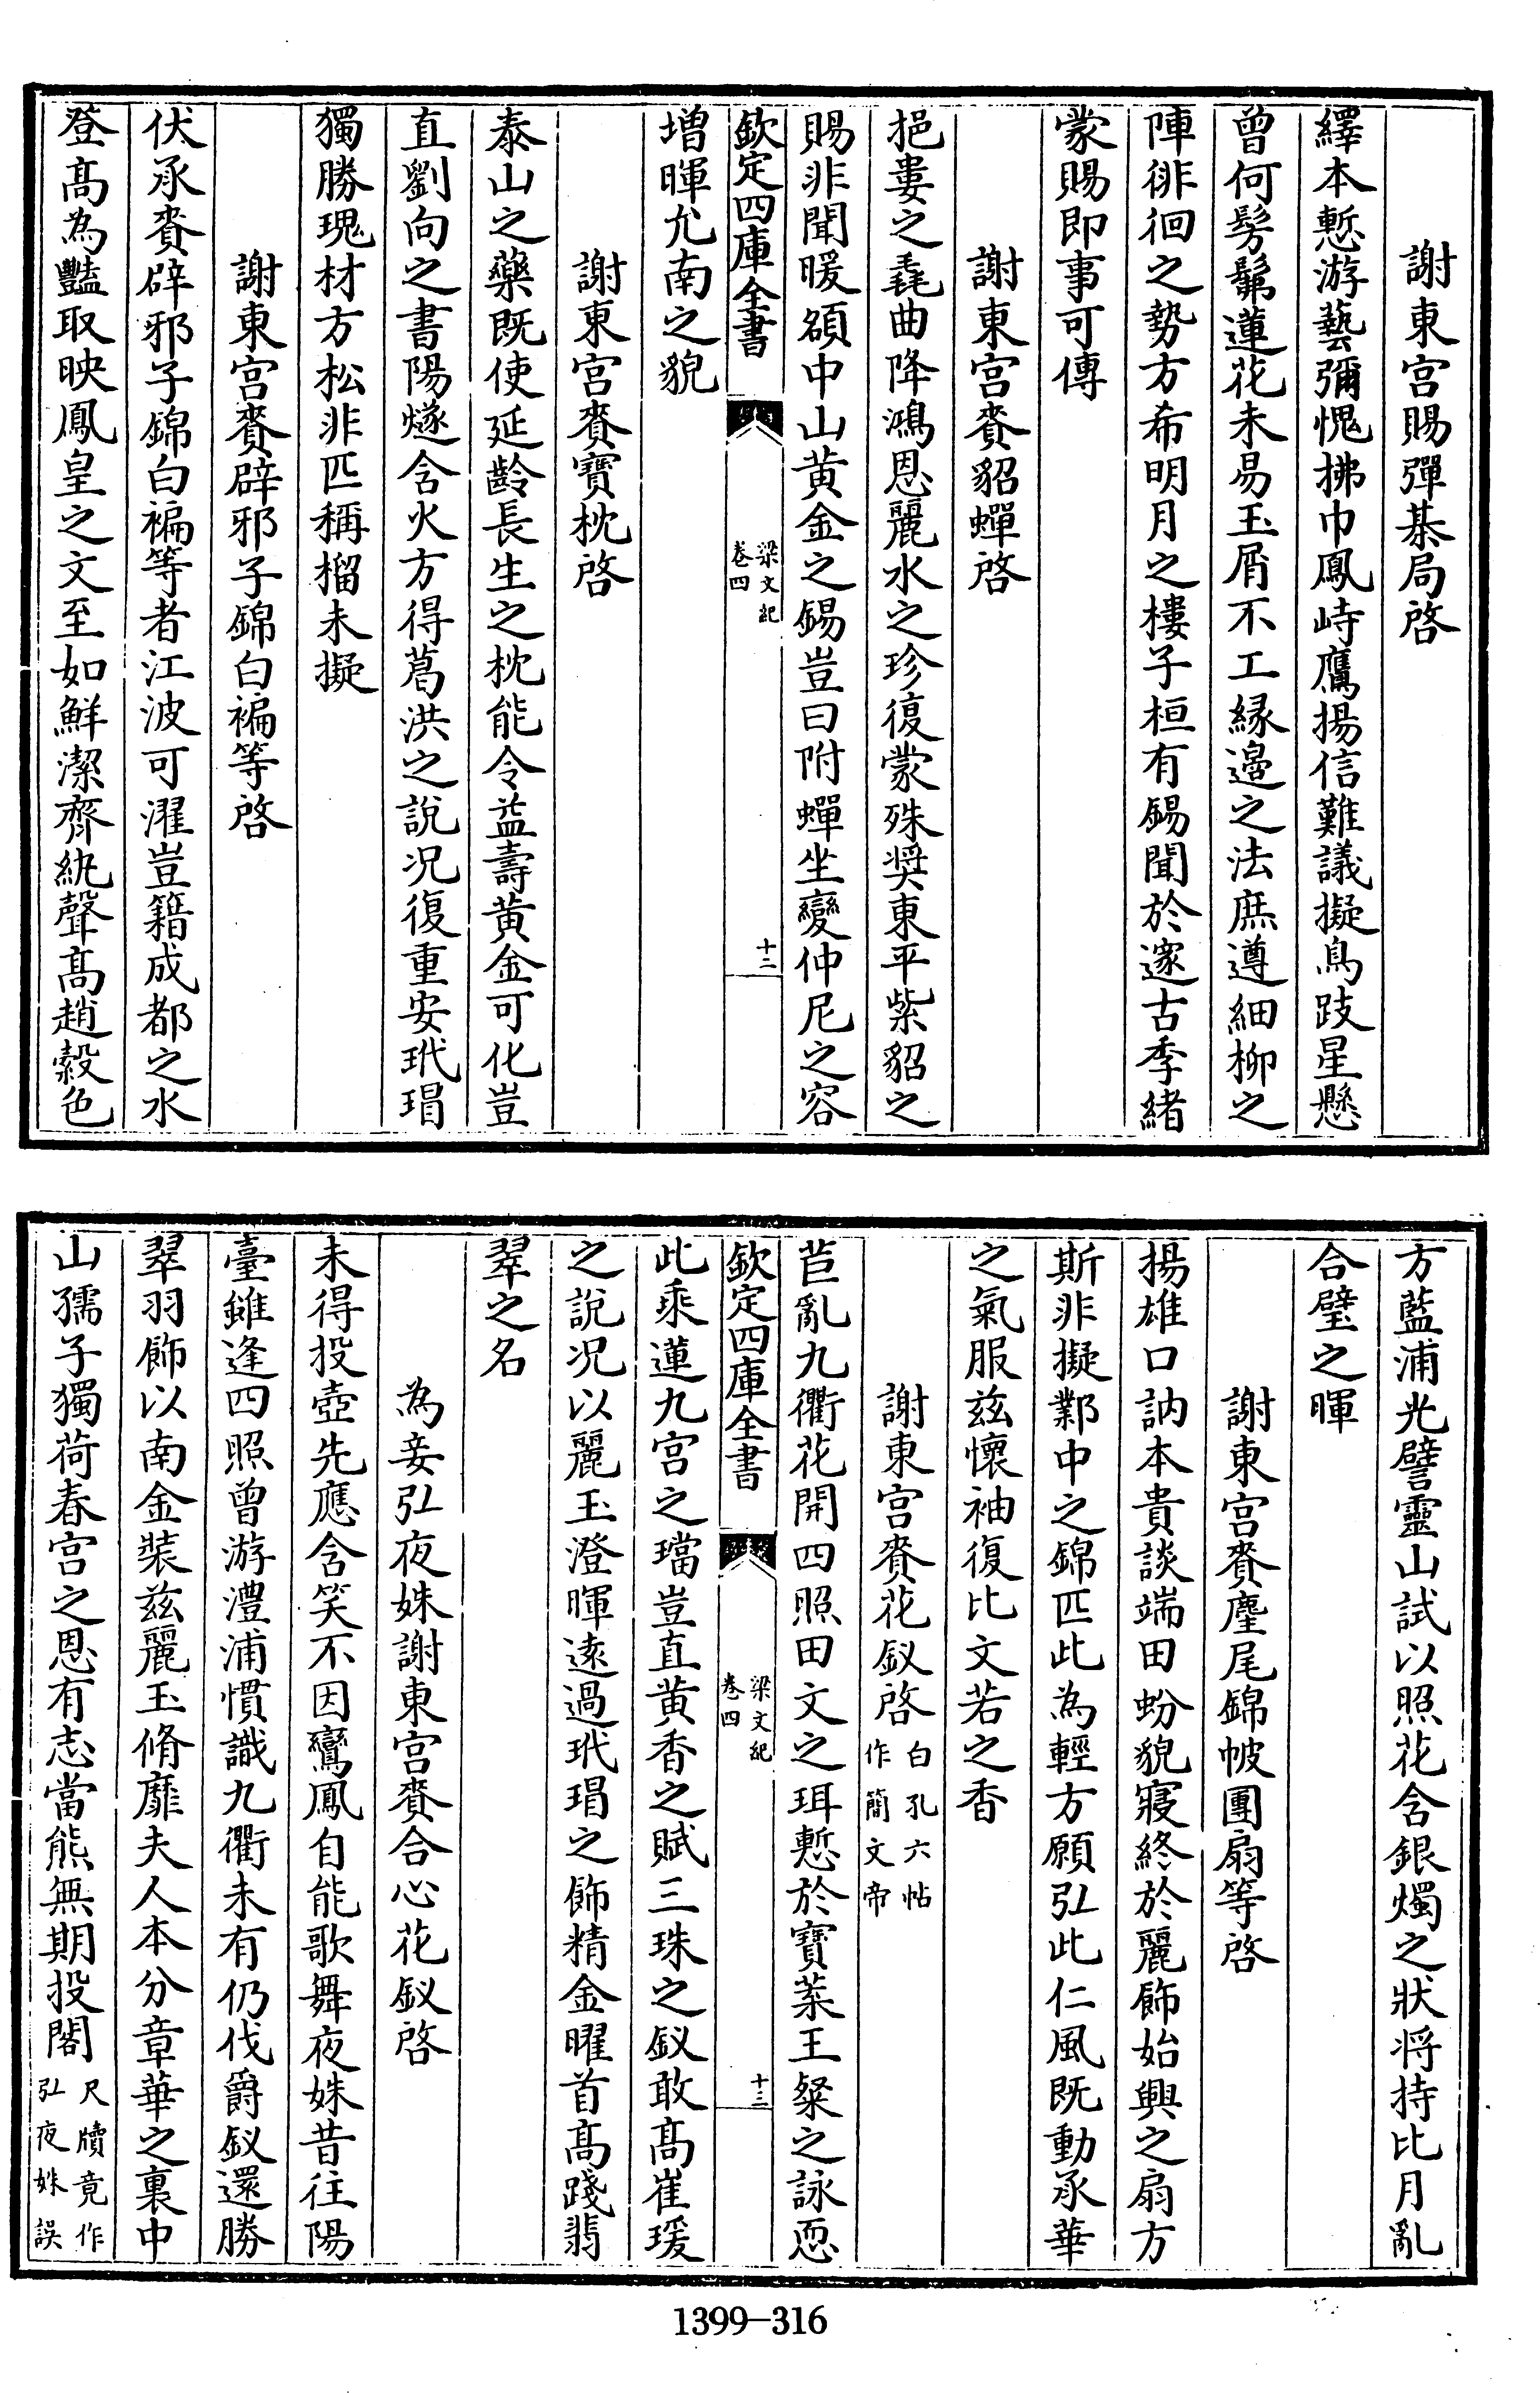 謝東宮賜彈棊局啓
繹本慙游藝彌愧拂巾鳳峙鷹揚信難議擬鳥跂星懸
曾何髣髴蓮花未易玉屑不工緣邊之法庶遵細柳之
陣徘徊之勢方希明月之樓子桓有錫聞於邃古季緒
蒙賜即事可傳
謝東宮賚貂蟬啓
挹婁之毳曲降鴻恩麗水之珍復蒙殊奬東平紫貂之
賜非聞暖頟中山黃金之錫豈曰附蟬坐變仲尼之容
欽定四庫全書
梁文紀
卷四
十二
增暉允南之貌
謝東宮賚寶枕啓
泰山之藥既使延齡長生之枕能令益壽黃金可化豈
直劉向之書陽燧含火方得葛洪之說况復重安玳瑁
獨勝瑰材方松非匹稱榴未擬
謝東宮賚辟邪子錦白褊等啓
伏承賚辟邪子錦白褊等者江波可濯豈籍成都之水
登高為豔取映鳳皇之文至如鮮潔齊紈聲高趙縠色
方藍浦光譬靈山試以照花含銀燭之狀將持比月亂
合璧之暉
謝東宮賚麈尾錦帔團扇等啓
揚雄口訥本貴談端田蚡貌寢終於麗飾始興之扇方
斯非擬鄴中之錦匹此為輕方願弘此仁風既動承華
之氣服兹懷袖復比文若之香
謝東宮賚花釵啓白孔六帖作簡文帝
苣亂九衢花開四照田文之珥慙於寶葉王粲之詠恧
欽定四庫全書
梁文紀
卷四
十三
此乘蓮九宮之璫豈直黃香之賦三珠之釵敢高崔瑗
之說况以麗玉澄暉遠過玳瑁之飾精金曜首高踐翡
翠之名
為妾弘夜姝謝東宮賚合心花釵啓
未得投壺先應含笑不因鸞鳳自能歌舞夜姝昔往陽
臺雖逢四照曾游澧浦慣識九衢未有仍代爵釵還勝
翠羽飾以南金裝兹麗玉脩靡夫人本分章華之裏中
山孺子獨荷春宮之恩有志當熊無期投閣尺牘竟作弘夜姝誤
1399-316